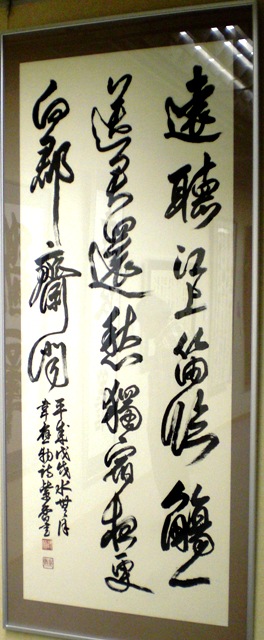 遠聽江上笛臨觴一
送君還愁獨宿夜更
向郡齋聞
平成戊戌水無月
韋應物詩